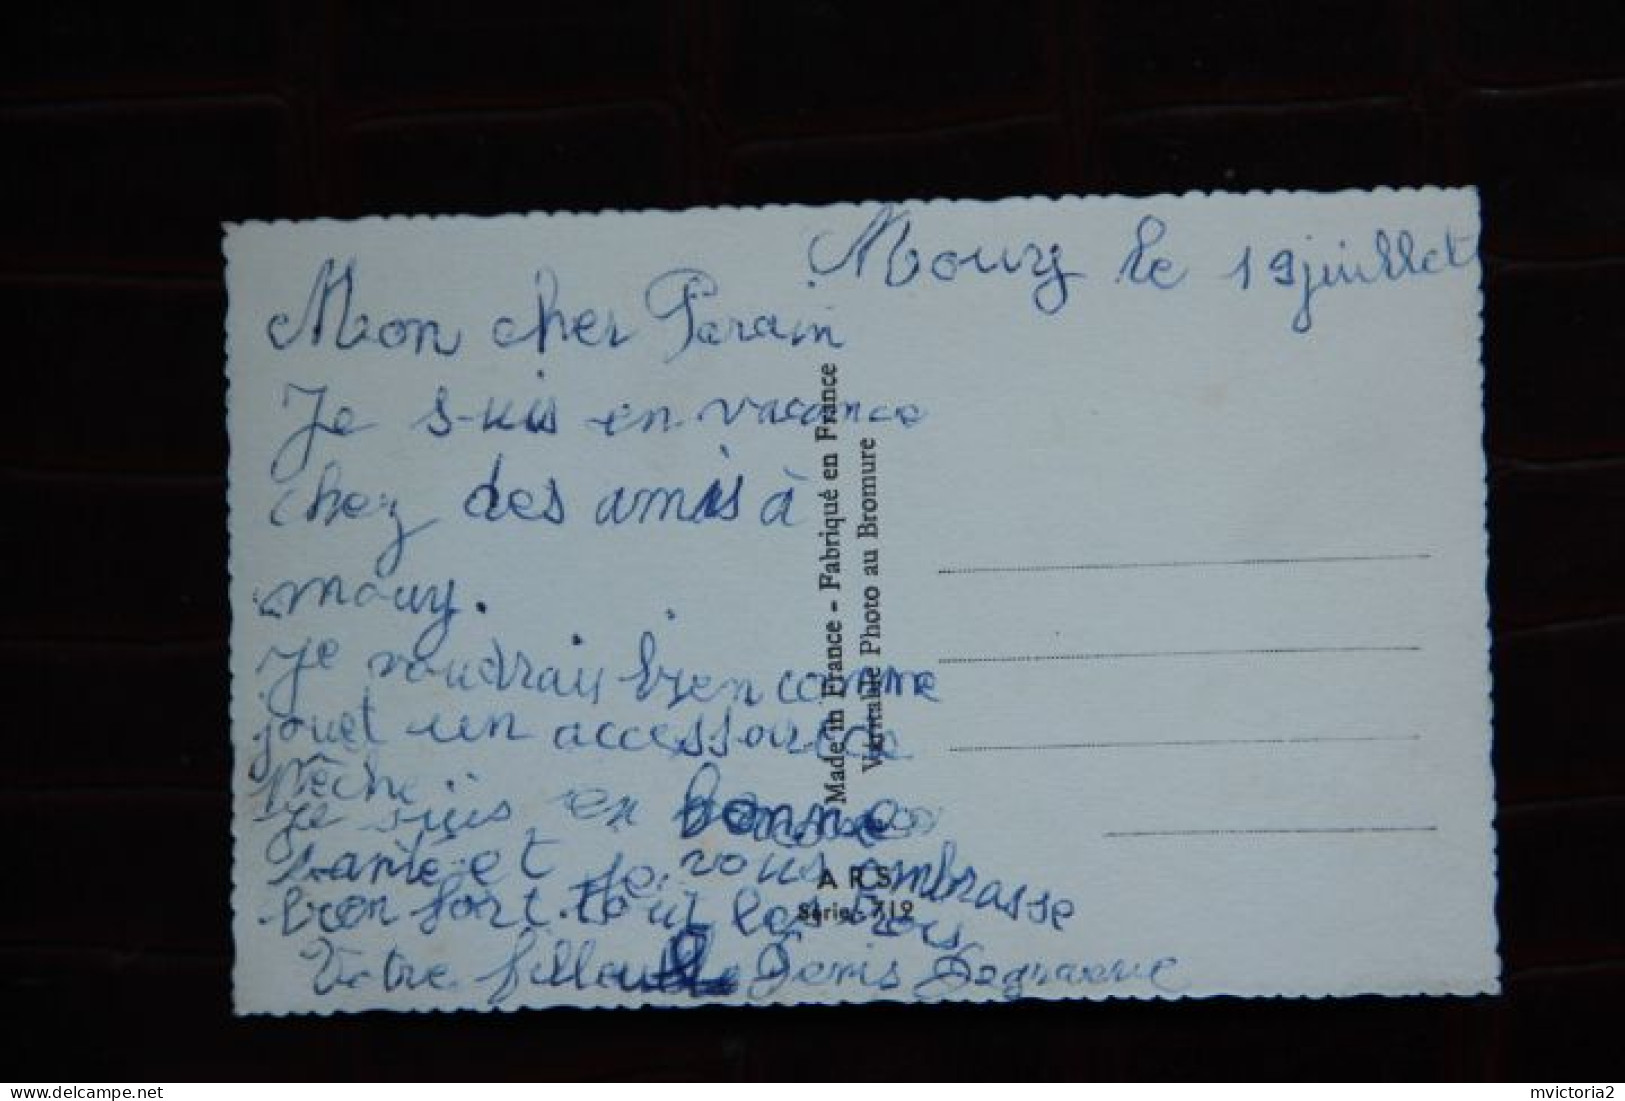 Mouy le 19 juillet
Mon cher Parain
Je suis en vacance
chez des amis à
mouy.
Je voudrais bien comme
jouet un accessoire de
pêche.
Je suis en bonne
santé et je vous embrasse
bien fort tout les trois
Votre filleul Denis Degraeve
Made in France - Fabriqué en France
Véritable Photo au Bromure
ARS
Série 712
mvictoria2